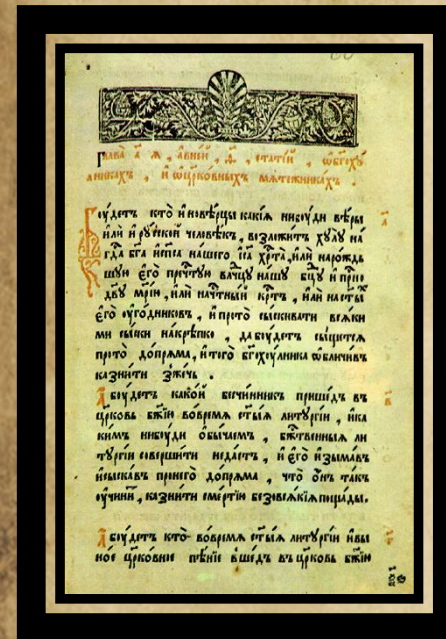 Глава̀ а҃ я , авне́й , д҃ , статїи , ѡбг҃охꙋ
лникахъ , и ѡцр҃ко́вныхъ мѧте́жникахъ .
Боу́детъ кто̀ иновѣ́рцы какі́ѧ нибоу́ди вѣ́ры
и҆лѝ и҆рꙋ́ской человѣ́къ , возложи́тъ хꙋлꙋ̀ на
гд҇а бг҃а и҆сп҃са на́шего і҆с҃а хр҇та̀ , и҆лѝ наро́ждь
шꙋю є҆го̀ прч҇тꙋю влч҇цꙋ на́шꙋ бц҃ꙋ и҆прн҇о
дв҃ꙋ мр҃і́ю , и҆лѝ начт҇ны́й кр҇тъ , и҆лѝ наст҃ы́х
є҆го̀ оу҆го́дниковъ , и҆прото̀ сы́скивати всѧ́ки
ми сы́ски накрѣ́пко , дабоу́детъ сы́щетсѧ
прото̀ допрѧ́ма , и҆того̀ бг҃охꙋ́лника ѡ҆бличи́въ
казни́ти зже́чь .
А҆боу́детъ како́й безчи́нникъ прише́дъ въ
цр҃ковь бж҃їю вовре́мѧ ст҃ы́ѧ литꙋргі́и , и҆ка
ки́мъ нибоу́ди ѻ҆бы́чаемъ , бжт҇венныѧ ли
тꙋргі́и соверши́ти неда́стъ , и҆ є҆го̀ и҆зыма́въ
и҆сыска́въ пронего̀ допрѧ́ма , что̀ ѻ҆́нъ та́къ
оу҆чини́т , казни́ти сме́ртїю безовсѧ́кїѧпоща́ды.
А҆боу́детъ кто̀ вовре́мѧ ст҃ы́ѧ литꙋргі́и и҆вы
но́е цр҃ко́вное пѣ́нїе вше́дъ въцр҃ковь бж҃їю